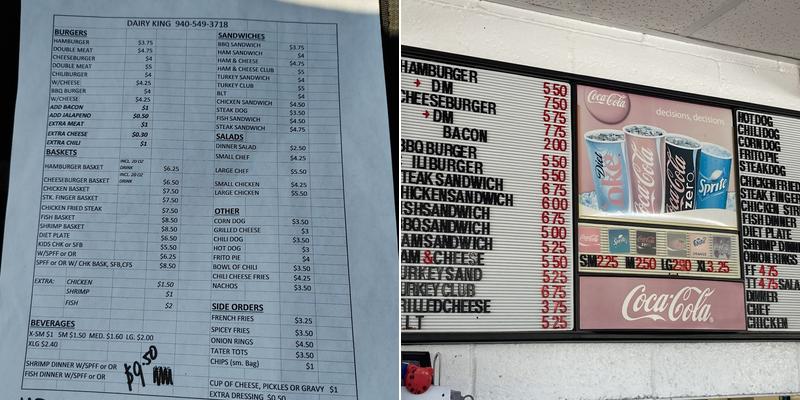 DAIRY KING 940-549-3718
BURGERS
HAMBURGER $3.75
DOUBLE MEAT $4.75
CHEESEBURGER $4
DOUBLE MEAT $5
CHILIBURGER $4
W/CHEESE $4.25
BBQ BURGER $4
W/CHEESE $4.25
ADD BACON $1
ADD JALAPENO $0.50
EXTRA MEAT $1
EXTRA CHEESE $0.30
EXTRA CHILI $1
BASKETS
HAMBURGER BASKET INCL. 20 OZ DRINK $6.25
CHEESEBURGER BASKET INCL. 20 OZ DRINK $6.50
CHICKEN BASKET $7.50
STK. FINGER BASKET $7.50
CHICKEN FRIED STEAK $7.50
FISH BASKET $8.50
SHRIMP BASKET $8.50
DIET PLATE $6.50
KIDS CHK or SFB $5.50
W/SPFF or OR $6.25
SPFF or OR W/ CHK BASK, SFB,CFS $8.50
EXTRA: CHICKEN $1.50
SHRIMP $1
FISH $2
BEVERAGES
X-SM $1 SM $1.50 MED. $1.60 LG. $2.00
XLG $2.40
SHRIMP DINNER W/SPFF or OR
FISH DINNER W/SPFF or OR
$9.50
SANDWICHES
BBQ SANDWICH $3.75
HAM SANDWICH $4
HAM & CHEESE $4
HAM & CHEESE CLUB $5
TURKEY SANDWICH $4
TURKEY CLUB $5
BLT $4
CHICKEN SANDWICH $4.50
STEAK DOG $3.50
FISH SANDWICH $4.50
STEAK SANDWICH $4.75
SALADS
DINNER SALAD $2.50
SMALL CHEF $4.25
LARGE CHEF $5.50
SMALL CHICKEN $4.25
LARGE CHICKEN $5.50
OTHER
CORN DOG $3.50
GRILLED CHEESE $3
CHILI DOG $3.50
HOT DOG $3
FRITO PIE $4
BOWL OF CHILI $3.50
CHILI CHEESE FRIES $4.25
NACHOS $3.50
SIDE ORDERS
FRENCH FRIES $3.25
SPICEY FRIES $3.50
ONION RINGS $4.50
TATER TOTS $3.50
CHIPS (sm. Bag) $1
CUP OF CHEESE, PICKLES OR GRAVY $1
EXTRA DRESSING $0.50
HAMBURGER 5.50
DM 7.50
CHEESEBURGER 5.75
DM 7.75
BACON 2.00
BBQ BURGER 5.50
ILI BURGER 5.50
TEAK SANDWICH 6.75
CHICKEN SANDWICH 6.00
SH SANDWICH 6.75
BQ SANDWICH 5.00
AM SANDWICH 5.25
AM & CHEESE 5.50
URKEY SAND 5.25
URKEY CLUB 6.75
RILLED CHEESE 3.75
LT 5.25
Coca-Cola
decisions, decisions
Diet Coke
Coca-Cola
Coca-Cola zero
Sprite
SM 2.25 M 2.50 LG 2.90 XL 3.25
Coca-Cola
HOT DOG
CHILI DOG
CORN DOG
FRITO PIE
STEAK DOG
CHICKEN FRIED
STEAK FINGER
CHICKEN STRI
FISH DINNER
DIET PLATE
SHRIMP DINN
ONION RINGS
FF 4.75
TT 4.75 SALA
DINNER
CHEF
CHICKEN